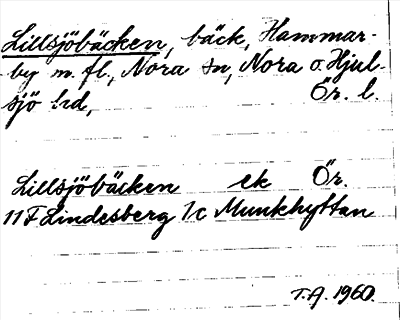 Lillsjöbäcken, bäck, Hammar-
by m. fl., Nora sn, Nora o. Hjul-
sjö hd, Ör. l.
Lillsjöbäcken ek Ör.
11 F Lindesberg 1c Munkhyttan
T.A. 1960.